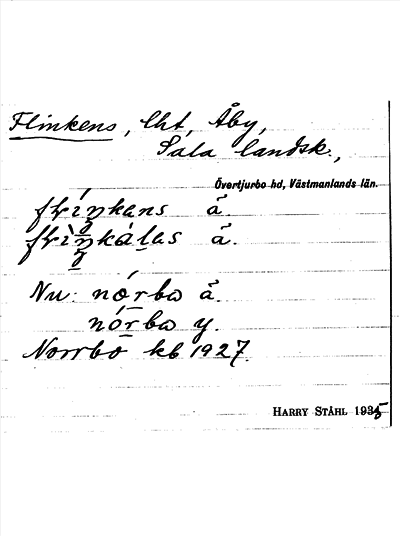 Flinkens, lht, Åby,
Sala landsk.,
Övertjurbo hd, Västmanlands län.
å.
å.
Nu: nǿrbo å.
nǿrbo y.
Norrbo kb 1927.
HARRY STÅHL 1935